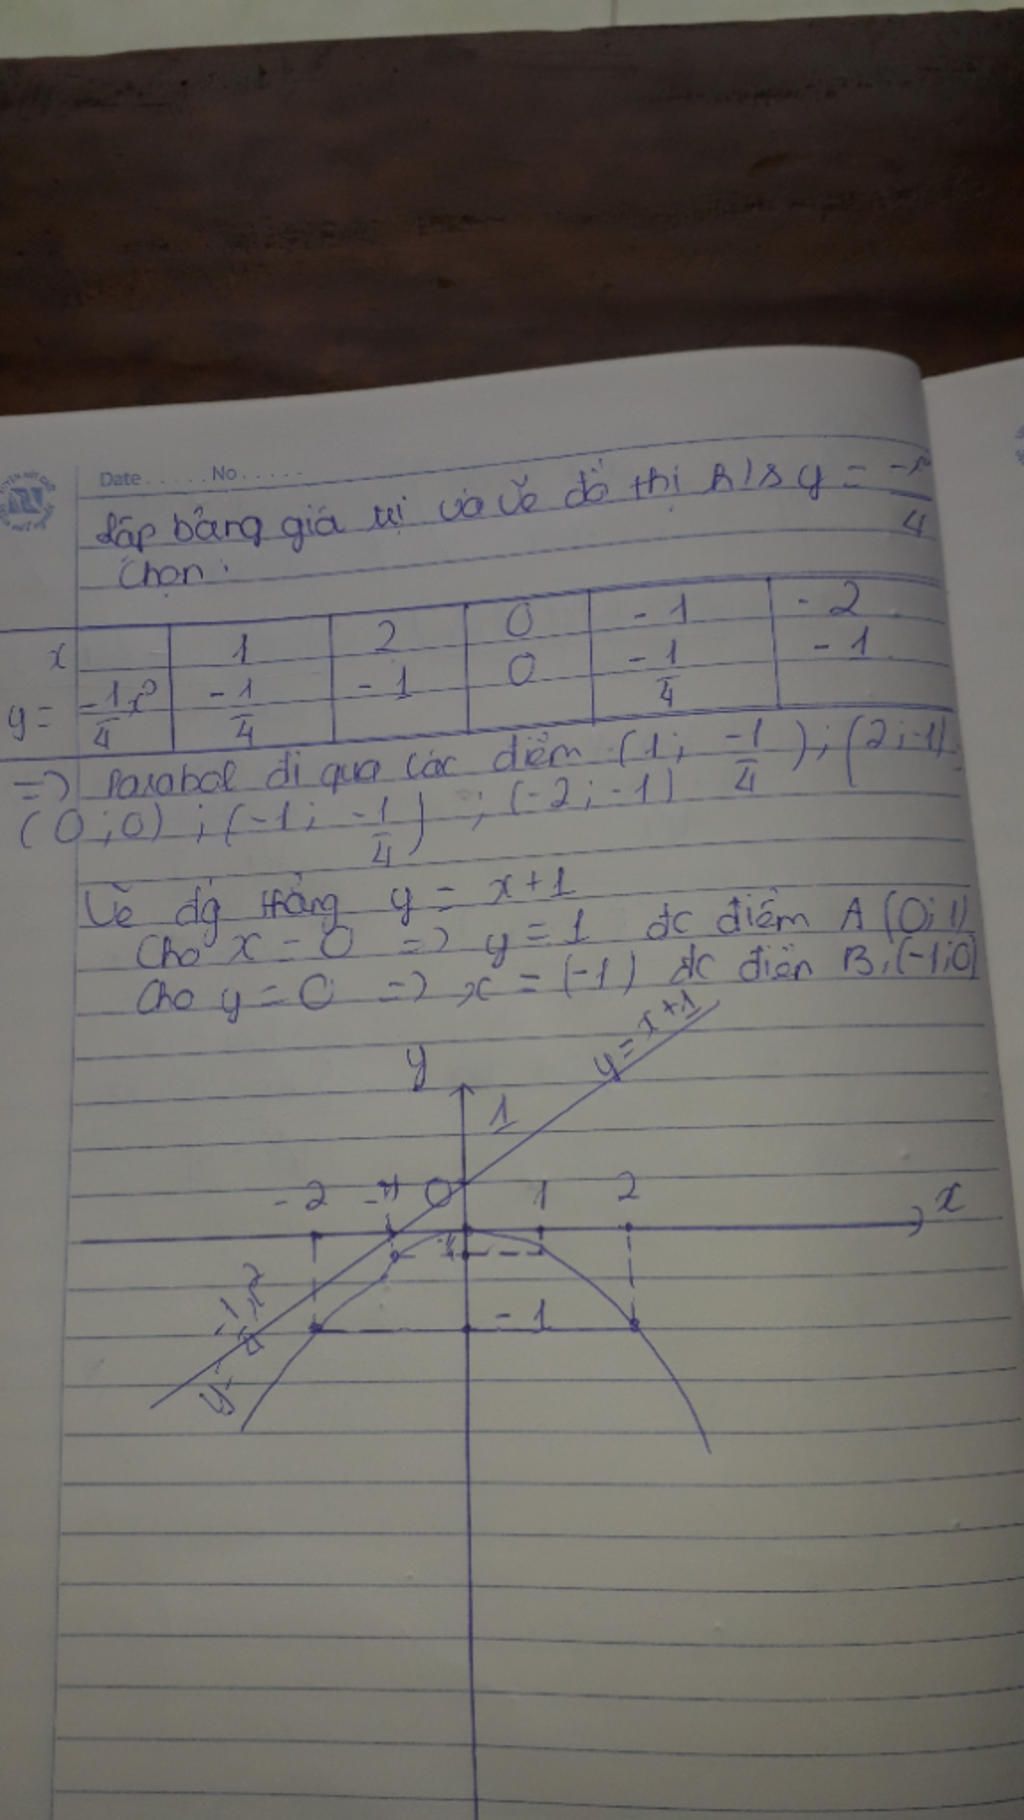 Date ...... No ......
Lập bảng giá trị và vẽ đồ thị h/s y = -x²/4
Chọn:
x 1 2 0 -1 -2
y = -1/4 x² -1/4 -1 0 -1/4 -1
=> Parabol đi qua các điểm (1; -1/4); (2; -1)
(0; 0); (-1; -1/4); (-2; -1)
Vẽ đg thẳng y = x+1
Cho x = 0 => y = 1 đc điểm A (0; 1)
Cho y = 0 => x = (-1) đc điểm B (-1; 0)
y = x+1
y
1
-2 -1 O 1 2 x
-1
y = -1/4 x²